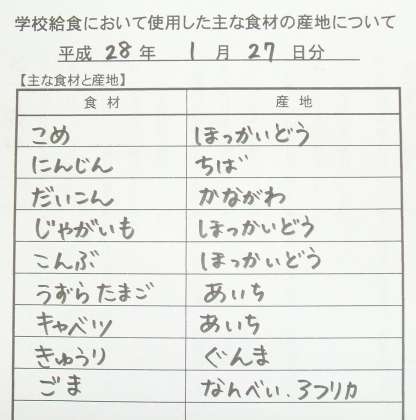 学校給食において使用した主な食材の産地について
平成 28 年 1 月 27 日分
【主な食材と産地】
食材 産地
こめ ほっかいどう
にんじん ちば
だいこん かながわ
じゃがいも ほっかいどう
こんぶ ほっかいどう
うずらたまご あいち
キャベツ あいち
きゅうり ぐんま
ごま なんべい.アフリカ